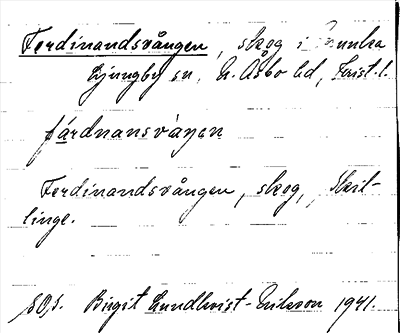 Ferdinandsvången, skog i Munka
Ljungby sn, N. Åsbo hd, Krist. l.
fárdnansvàŋen
Ferdinandsvången, skog, Skil-
linge.
SOS. Birgit Lundkvist-Erikson 1941.